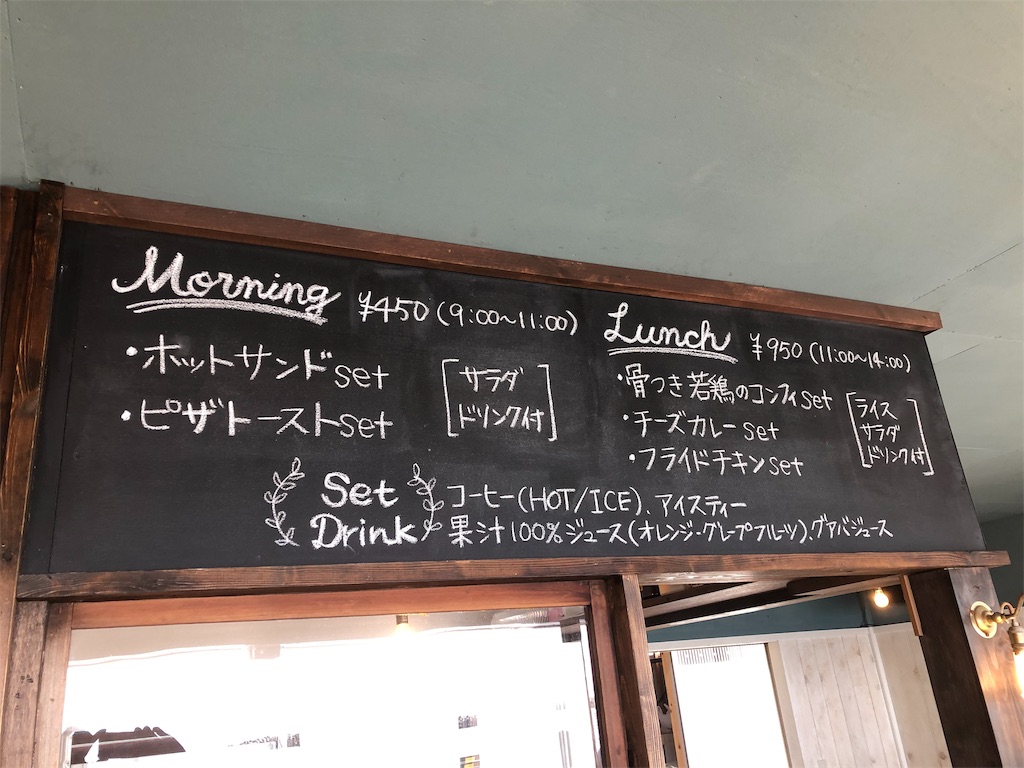 Morning ¥450 (9:00~11:00)
・ホットサンドset
・ピザトーストset
[サラダ
ドリンク付]
Lunch ¥950 (11:00~14:00)
・骨つき若鶏のコンフィset
・チーズカレーset
・フライドチキンset
[ライス
サラダ
ドリンク付]
Set
Drink
コーヒー(HOT/ICE)、アイスティー
果汁100%ジュース(オレンジ・グレープフルーツ)、グアバジュース